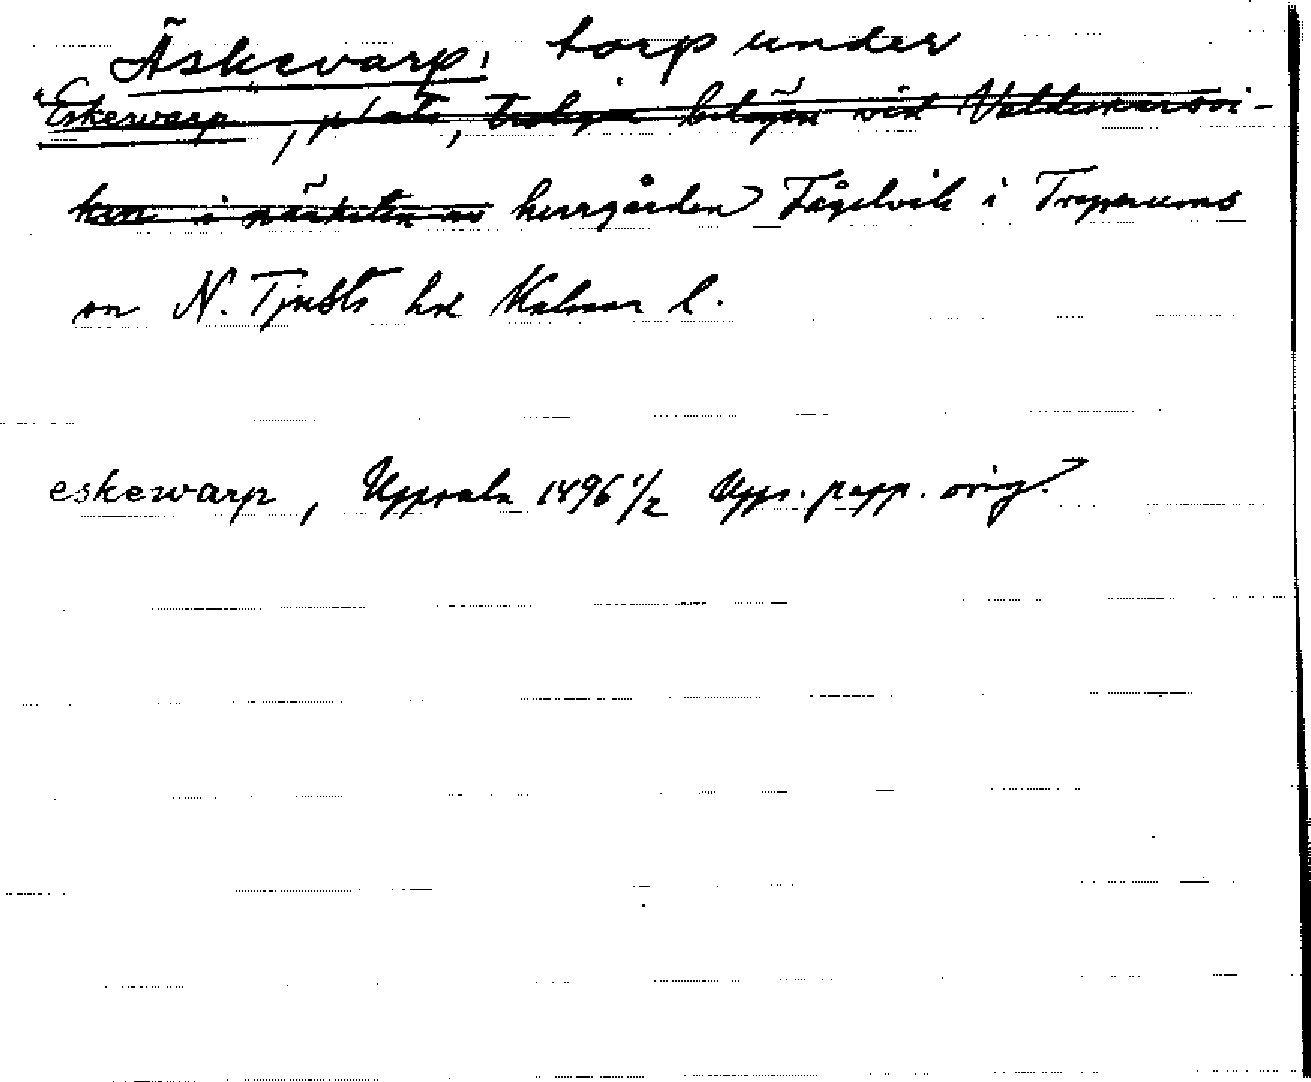 Äskevarp, torp under
"Eskewarp, plats, troligen belägen vid Valdemarsvi-
ken i närheten av herrgården Fågelvik i Tryserums
sn N. Tjusts hd Kalmar l.
eskewarp, Uppsala 1496 1/2 Upps. papp. orig.